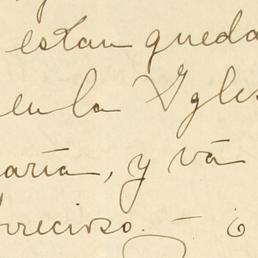 estan queda
en la Igles
aría, y vá
rrecioso. — o